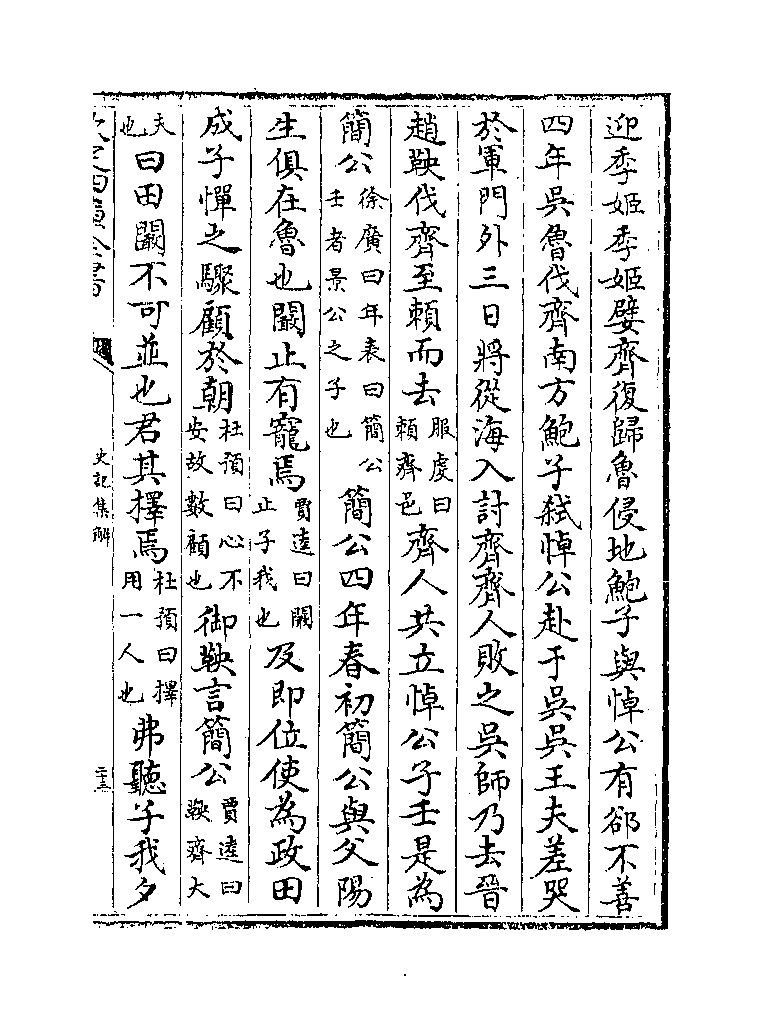 迎季姬季姬嬖齊復歸魯侵地鮑子與悼公有郤不善
四年吳魯伐齊南方鮑子弑悼公赴于吳吳王夫差哭
於軍門外三日將從海入討齊齊人敗之吳師乃去晉
趙鞅伐齊至賴而去服虔曰賴齊邑齊人共立悼公子壬是為
簡公徐廣曰年表曰簡公壬者景公之子也簡公四年春初簡公與父陽
生俱在魯也闞止有寵焉賈逵曰闞止子我也及即位使為政田
成子憚之驟顧於朝杜預曰心不安故數顧也御鞅言簡公賈逵曰鞅齊大
夫也曰田闞不可並也君其擇焉杜預曰擇用一人也弗聽子我夕
欽定四庫全書
史記集解
二十三